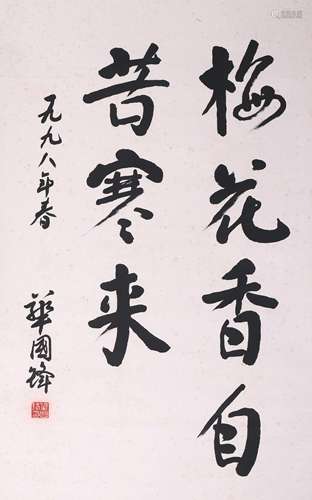 梅花香自
苦寒来
一九九八年春
華國鋒